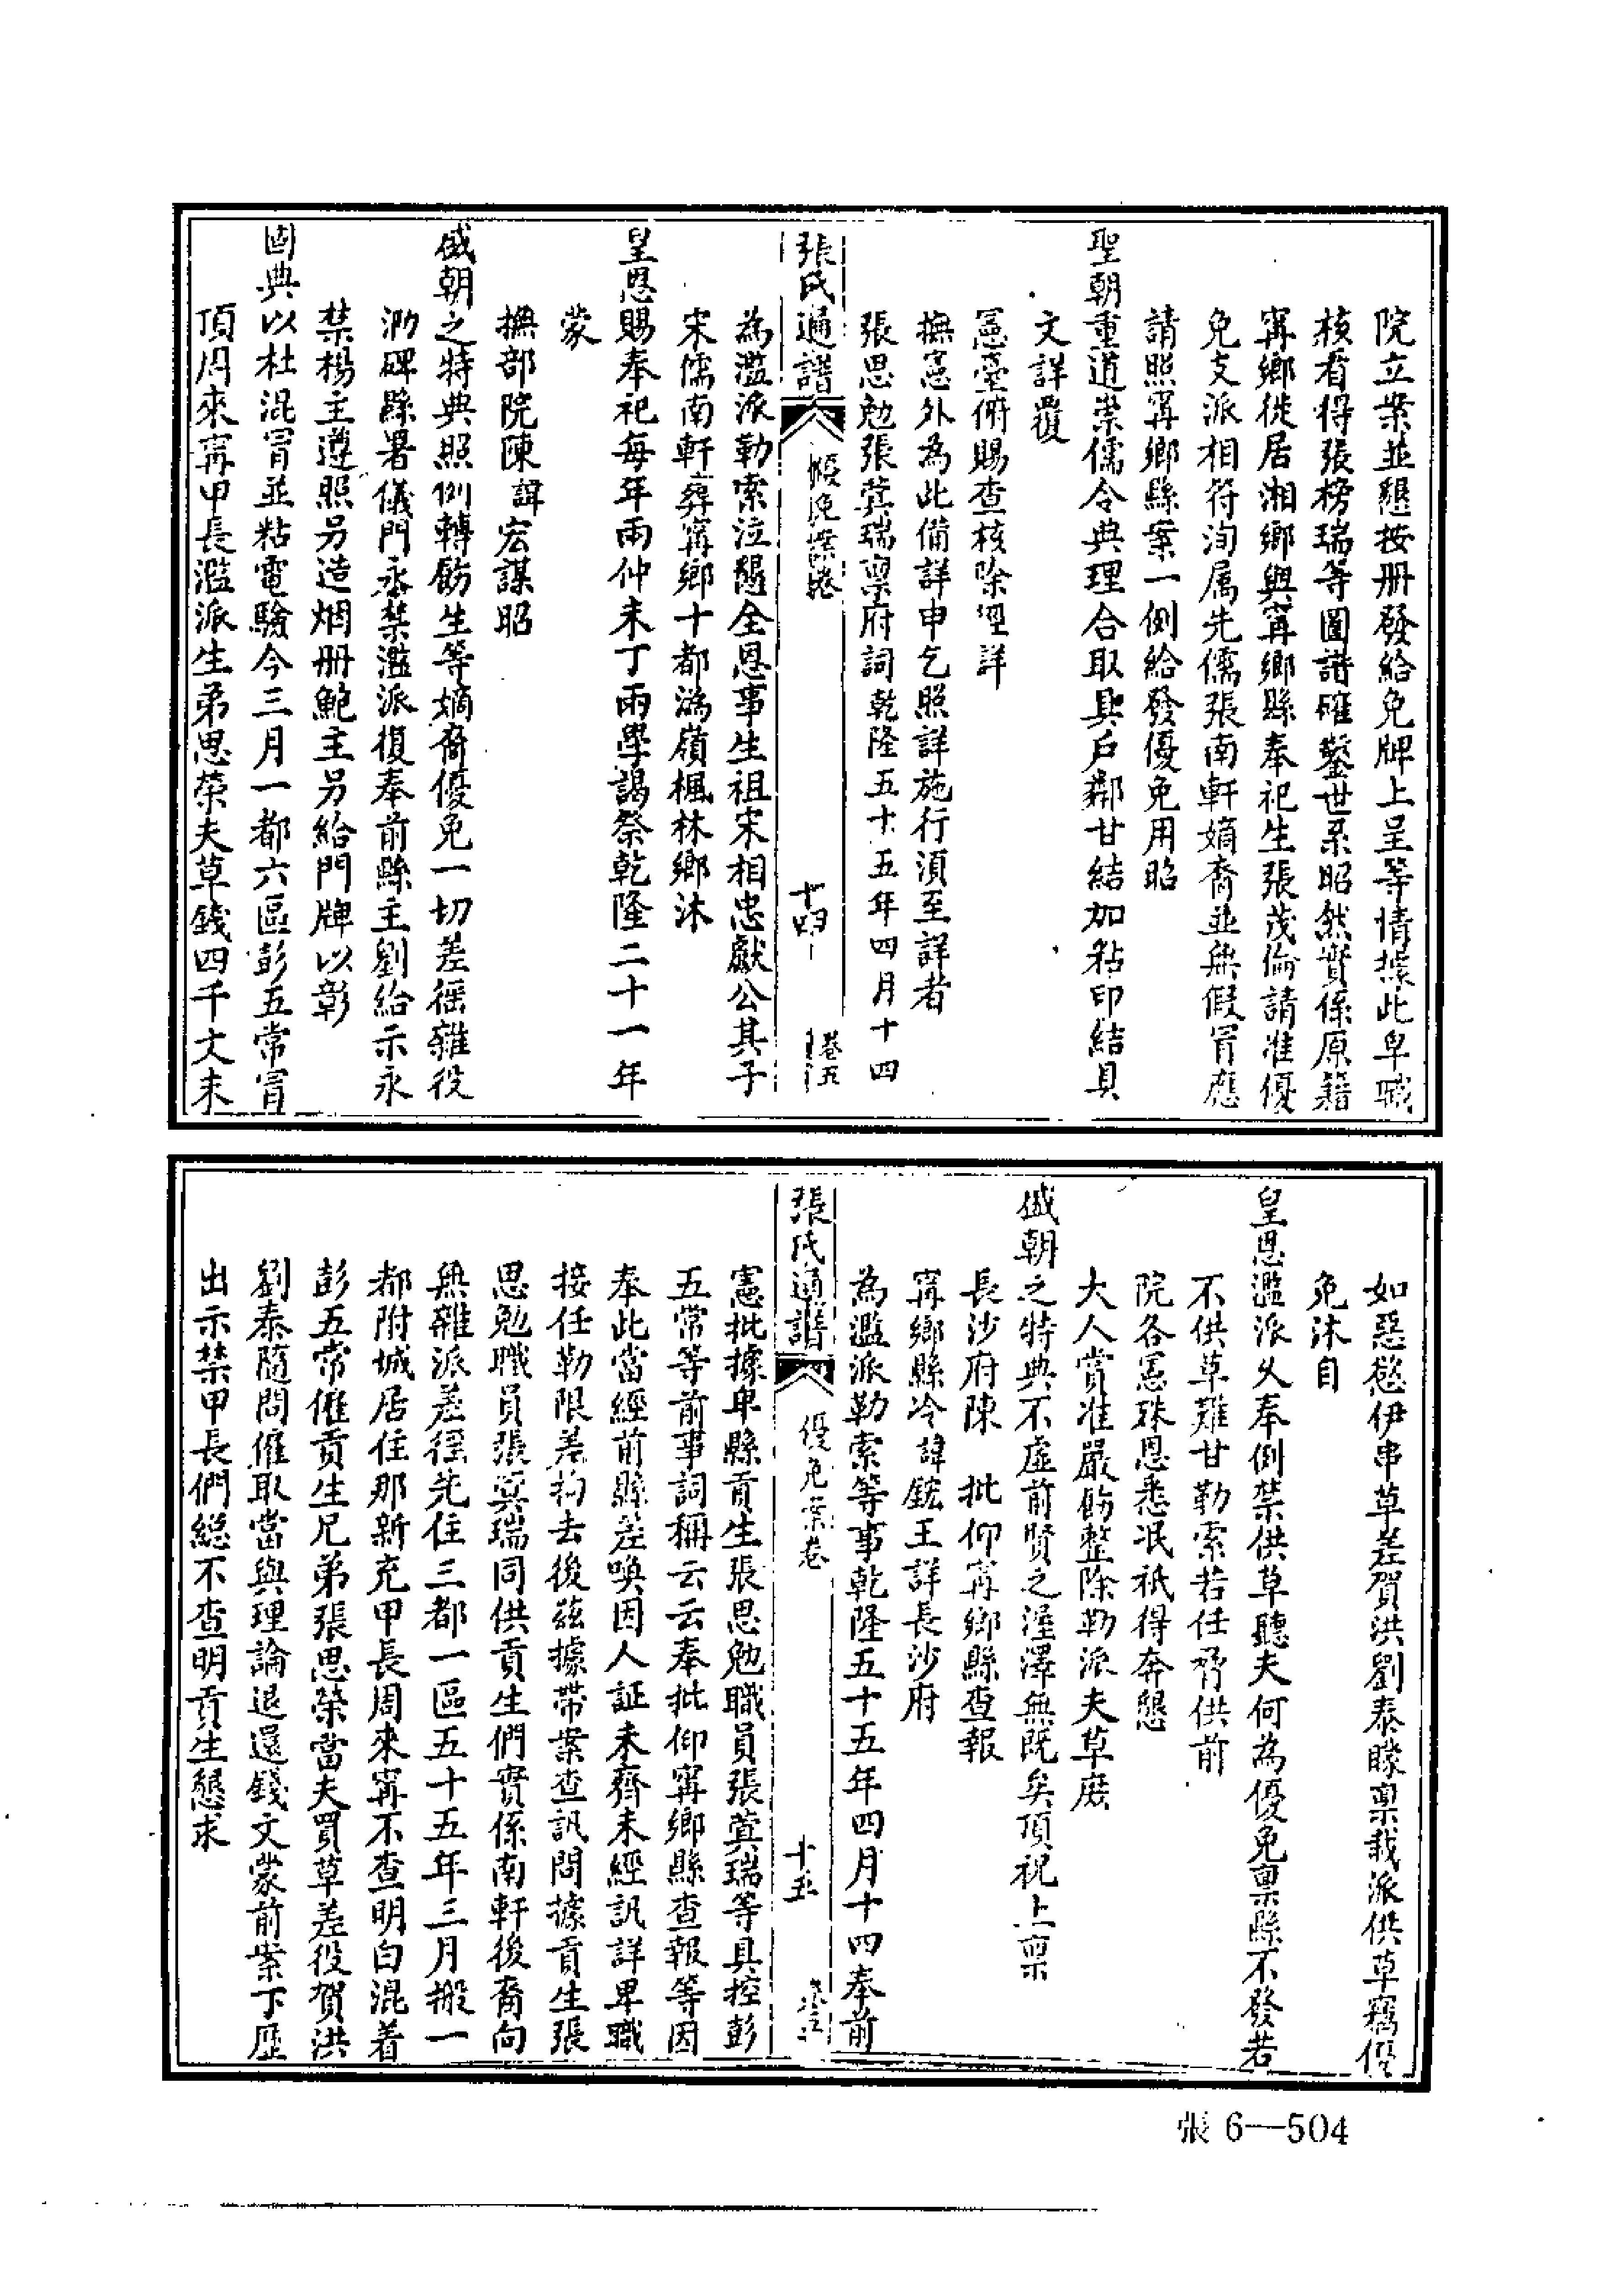 院立案並懇按册發給免牌上呈等情據此卑職
核看得張榜瑞等圖譜確鑿世系昭然實係原籍
甯鄉徙居湘鄉與甯鄉縣奉祀生張茂倫請准優
免支派相符洵属先儒張南軒嫡裔並無假冒應
請照甯鄉縣案一例給發優免用昭
聖朝重道崇儒令典理合取具户鄰甘結加粘印結具
文詳覆
憲臺俯賜查核除逕詳
撫憲外為此備詳申乞照詳施行須至詳者
張思勉張蓂瑞禀府詞乾隆五十五年四月十四
張氏通譜
優免案卷
十四
卷五
為濫派勒索泣懇全恩事生祖宋相忠獻公其子
宋儒南軒葬甯鄉十都溈嶺楓林鄉沐
皇恩賜奉祀每年兩仲末丁兩學謁祭乾隆二十一年
蒙
撫部院陳諱宏謀昭
盛朝之特典照例轉飭生等嫡裔優免一切差徭雜役
泐碑縣署儀門永禁濫派復奉前縣主劉給示永
禁楊主遵照另造烟册鮑主另給門牌以彰
國典以杜混冒並粘電驗今三月一都六區彭五常冒
頂周來甯甲長濫派生弟思榮夫草錢四千文未
如惡慾伊串草差賀洪劉泰矇禀裁派供草竊優
免沐自
皇恩濫派乂奉例禁供草聽夫何為優免禀縣不發若
不供草難甘勒索若任脅供前
院各憲殊恩悉泯祇得奔懇
大人賞准嚴飭整除勒派夫草庶
盛朝之特典不虛前賢之渥澤無既矣頂祝上禀
長沙府陳 批仰甯鄉縣查報
甯鄉縣冷諱鋐王詳長沙府
為濫派勒索等事乾隆五十五年四月十四奉前
張氏通譜
優免案卷
十五
卷五
憲批據卑縣貢生張思勉職員張蓂瑞等具控彭
五常等前事詞稱云云奉批仰甯鄉縣查報等因
奉此當經前縣差喚因人証未齊未經訊詳卑職
接任勒限差拘去後兹據帶案查訊問據貢生張
思勉職員張蓂瑞同供貢生們實係南軒後裔向
無雜派差徭先住三都一區五十五年三月搬一
都附城居住那新充甲長周來甯不查明白混着
彭五常催貢生兄弟張思榮當夫買草差役賀洪
劉泰隨問催取當與理論退還錢文蒙前案下歷
出示禁甲長們總不查明貢生懇求
張 6—504